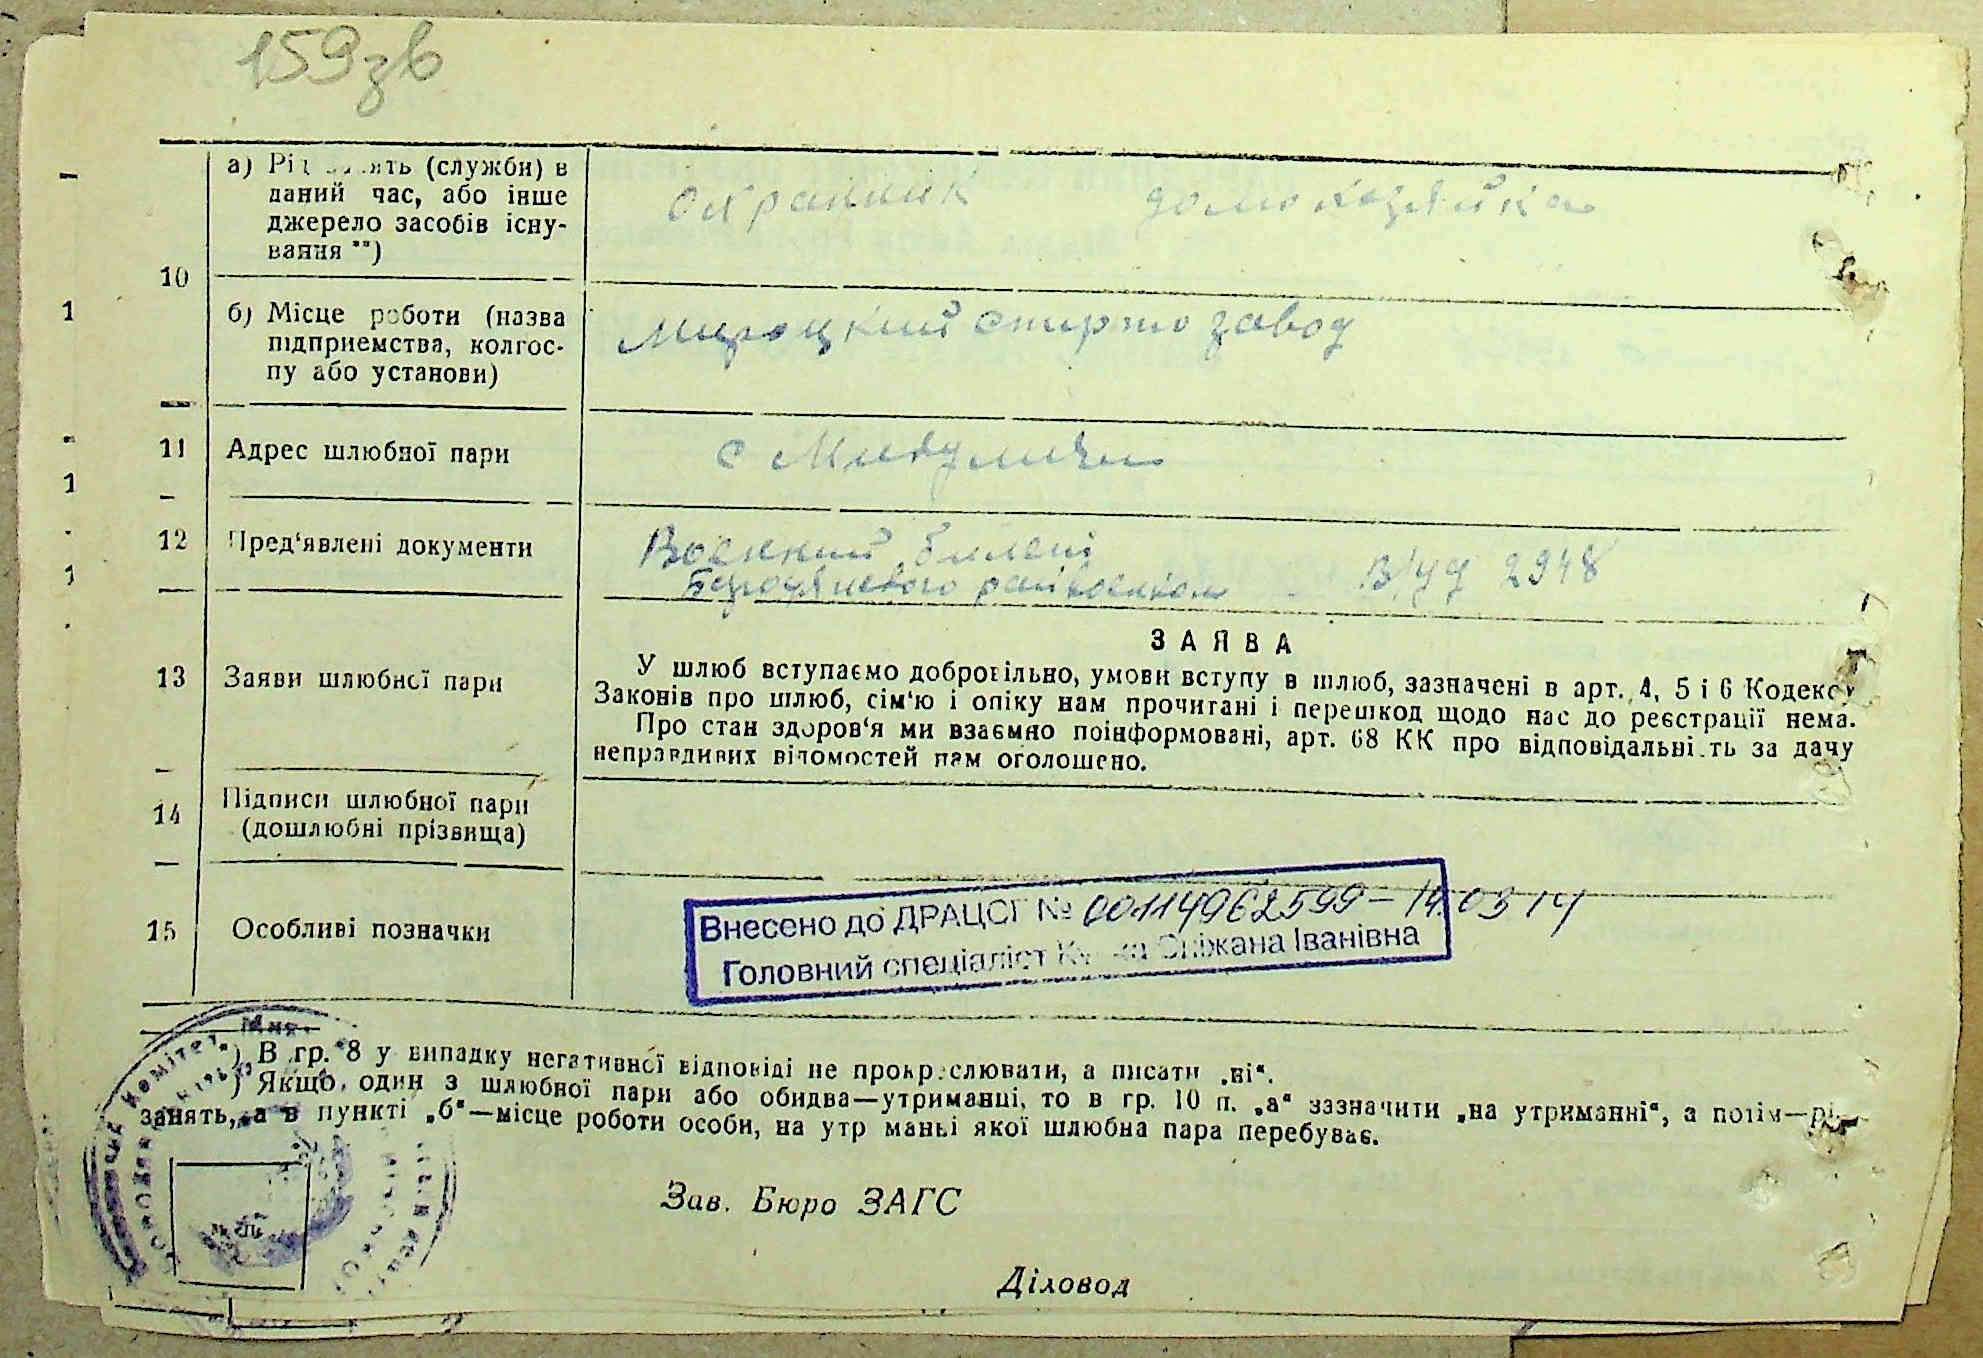 159зв
а) Рід занять (служби) в
даний час, або інше
джерело засобів існу-
вання **)
охранник домохазяйка
10
б) Місце роботи (назва
підприємства, колгос-
пу або установи)
Мироцкий спирто завод
11 Адрес шлюбної пари
с Микуличи
12 Пред‘явлені документи
Военный билет
Бородянского райвоенком
2948
ЗАЯВА
13 Заяви шлюбної пари
У шлюб вступаємо добровільно, умови вступу в шлюб, зазначені в арт. 4, 5 і 6 Кодексу
Законів про шлюб, сім‘ю і опіку нам прочитані і перешкод щодо нас до реєстрації нема.
Про стан здоров‘я ми взаємно поінформовані, арт. 68 КК про відповідальність за дачу
неправдивих відомостей нам оголошено.
14 Підписи шлюбної пари
(дошлюбні прізвища)
15 Особливі позначки
Внесено до ДРАЦСГ № 00114962599 – 14.03 14
Головний спеціаліст Сніжана Іванівна
*) В гр. 8 у випадку негативної відповіді не прокреслювати, а писати „ні“.
) Якщо один з шлюбної пари або обидва—утриманці, то в гр. 10 п. „а“ зазначити „на утриманні“, а потім—рід
занять, а в пункті „б“—місце роботи особи, на утриманні якої шлюбна пара перебуває.
Зав. Бюро ЗАГС
Діловод